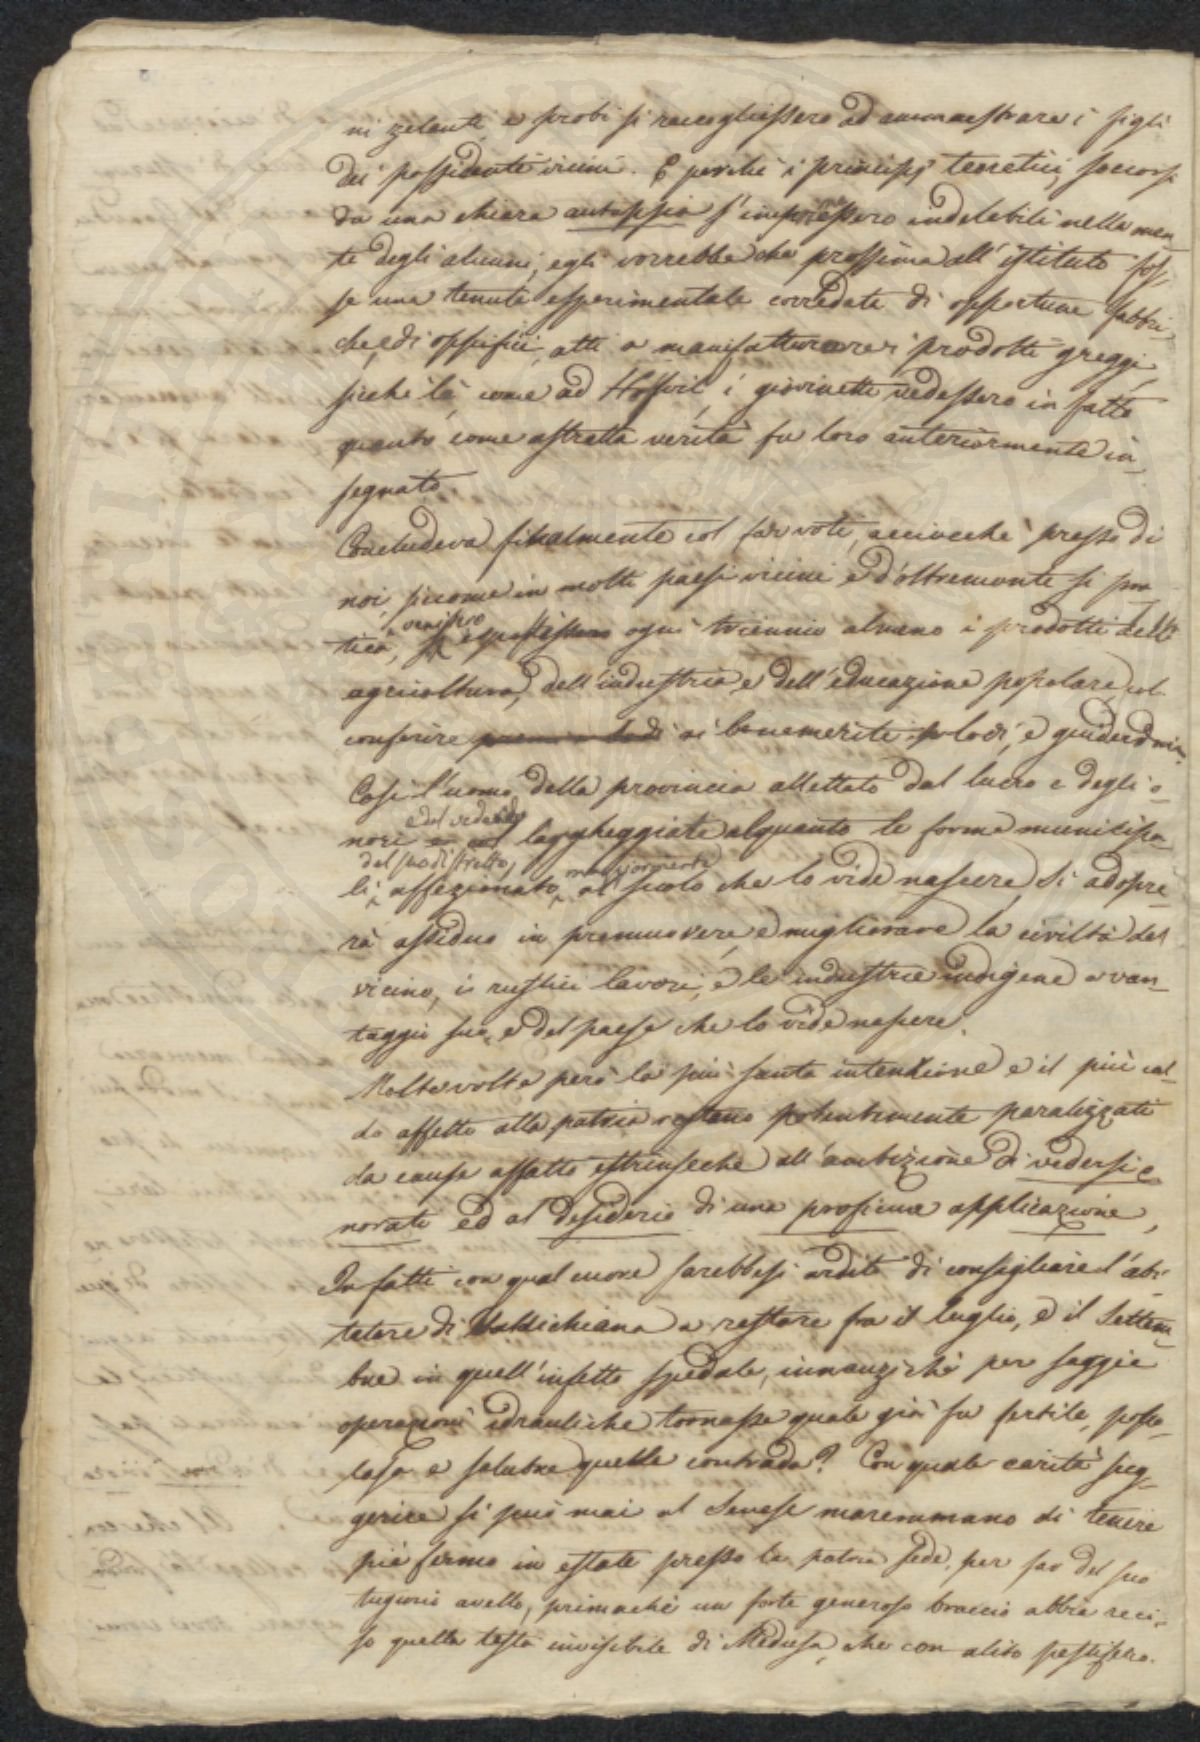 ni zelanti e probi si raccogliessero ad ammaestrare i figli
dei possidenti vicini. E perchè i principj teoretici, soccorsi
da una chiara autopsia s'imprimessero indelebili nella men-
te degli alunni, egli vorrebbe che prossima all'istituto fos-
se una tenuta esperimentale corredata di opportune fabbri-
che, e di opifici, atti a manifatturare i prodotti greggi,
sicchè là, come ad Hofwil, i giovinetti vedessero in fatto
quanto come astratta verità fu loro anteriormente in-
segnato.
Concludeva finalmente col far voti, acciocchè presso di
noi, siccome in molti paesi vicini e d'oltremonte si pra-
venissero
tica, si esponessero ogni triennio almeno i prodotti dell'
agricoltura, dell'industria, e dell'educazione popolare, col
conferire premi e lodi ai benemeriti lodi, e guiderdoni.
Così l'uomo della provincia allettato dal lucro e degli o-
e dal vedere
nori largheggiate alquanto le forme municipa-
del suo distretto, maggiormente
li, affezionato, al suolo che lo vide nascere, si adopre-
rà assiduo in promuovere, e migliorare la civiltà del
vicino, i rustici lavori, e le industrie indigene a van-
taggio suo, e del paese che lo vide nascere.
Molte volte però la più santa intenzione e il più cal-
do affetto alla patria restano potentemente paralizzati
da cause affatto estrinseche all'ambizione di vedersi o-
norati ed al desiderio di una proficua applicazione,
Infatti con qual cuore sarebbesi ardito di consigliare l'abi-
tatore di Valdichiana a restare fra il luglio, e il Settem-
bre in quell'infetto spedale, innanzi chè per saggie
operazioni idrauliche tornasse quale già fu fertile, popo-
losa e salubre quella contrada? Con quale carità sug-
gerire si può mai al Senese maremmano di tenere
piè fermo in estate presso la patria sede, per far del suo
tugurio avello, primachè un forte generoso braccio abbia reci-
so quella testa invisibile di Medusa, che con alito pestifero.